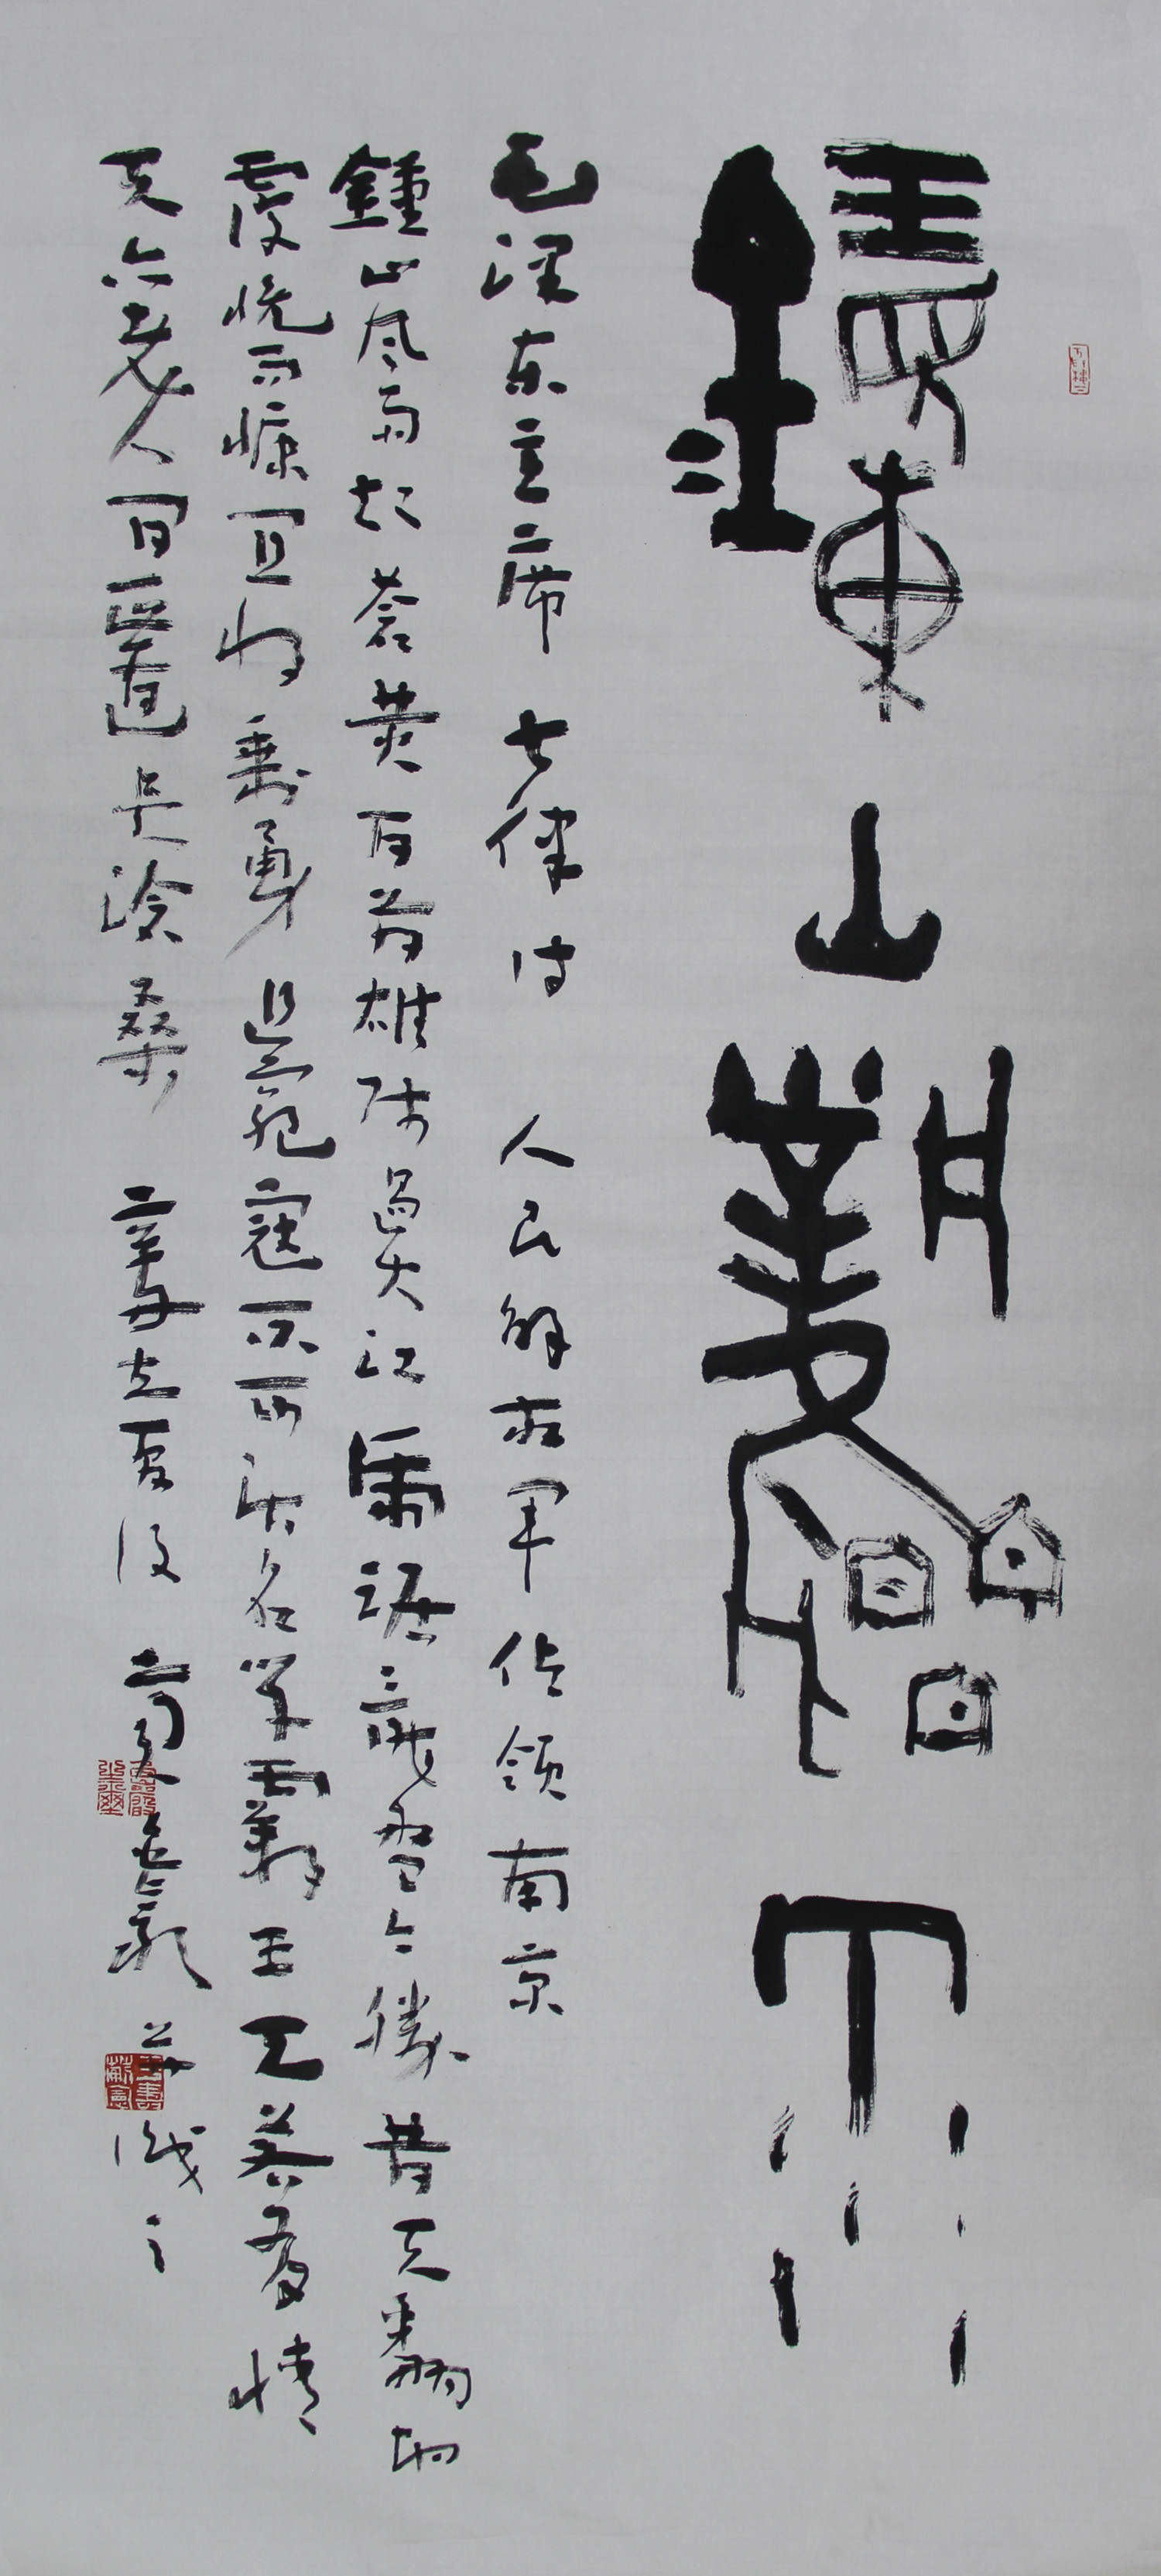 鍾山風雨
毛澤东主席 七律诗 人民解放軍佔领南京
鍾山风雨起蒼黄百萬雄师過大江虎踞龍盤今勝昔天翻地
覆慨而慷宜将剩勇追窮寇不可沽名学霸王天若有情
天亦老人间正道是滄桑 辛丑立夏後 並識之